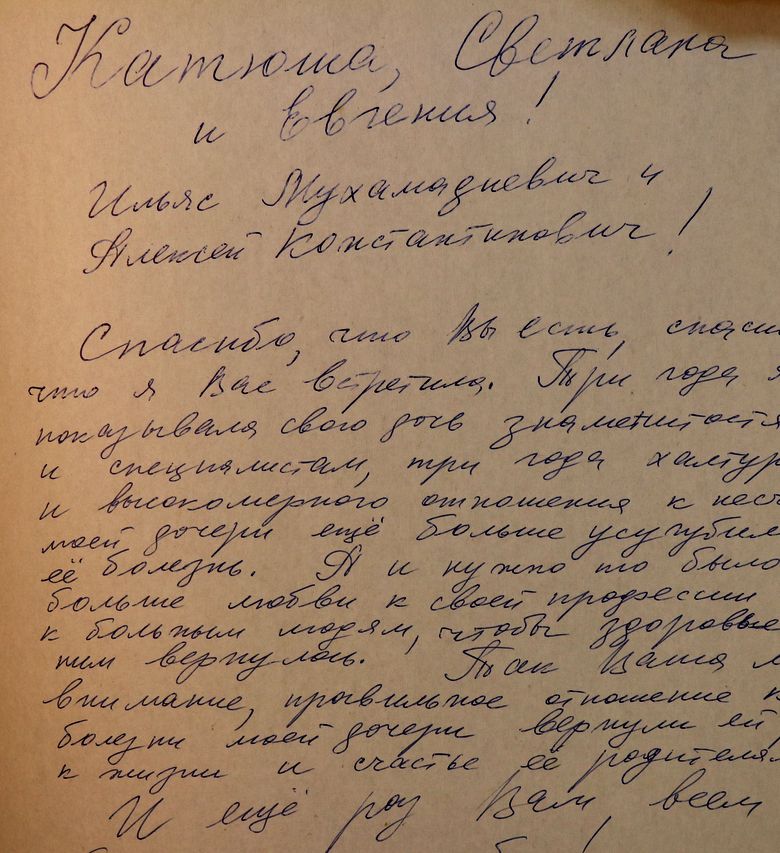 Катюша, Светлана
и Евгения!
Ильяс Мухамадиевич и
Алексей Константинович!
Спасибо, что Вы есть, спаси
что я Вас встретила. Три года я
показывала свою дочь знаменитостя
и специалистам, три года халтур
и высокомерного отношения к несч
моей дочери ещё больше усугубил
её болезнь. А и нужно то было
больше любви к своей профессии
к больным людям, чтобы здоровье
ним вернулось. Так Ваша
внимание, правильное отношение к
болезни моей дочери вернули ей
к жизни и счастье её родителя
И ещё раз Вам, всем